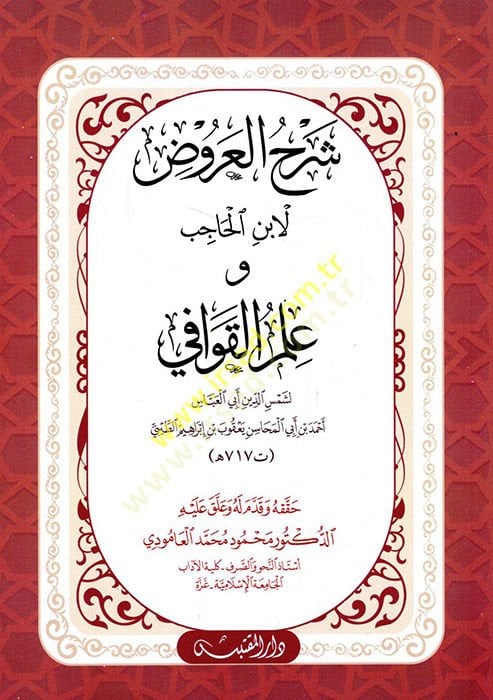 شَرْحُ العَرُوضِ
لابْنِ الحَاجِب
و
عِلْمُ القَوَافي
لشَمْسِ الدِّينِ أَبي العَبَّاسِ
أَحْمَدَ بْنِ أَبي المَحَاسِنِ يَعْقُوبَ بْنِ إبْرَاهِيمَ الطِّيبيِّ
(ت ٧١٧ هـ)
حَقَّقَهُ وَقَدَّمَ لَهُ وَعَلَّقَ عَلَيْهِ
الدُّكْتُور مَحْمُود مُحَمَّد العَامُودي
أستاذ النَّحو والصَّرف - كلية الآداب
الجامعة الإسلاميّة - غزّة
دار المقتبس